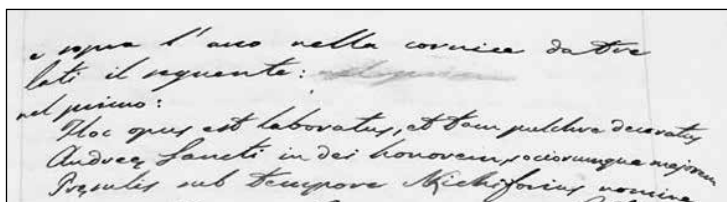 e sopra l'arco nella cornice da tre
lati il seguente:
nel primo:
Hoc opus est laboratus, et tam pulchre decoratus
Andreę Sancti in dei honorem, sociorumque majorem
Pręsulis sub tempore Nichiforius nomine